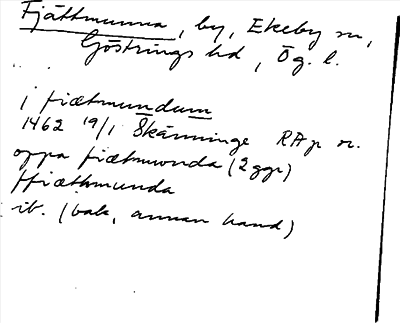 Fjättmunna, by, Ekeby sn,
Göstrings hd, Ög. l.
i fiætmundum
1462 19/1 Skänninge RAp or.
oppa fiætmunda (2 ggr)
ffiæthmunda
ib. (bak, annan hand)